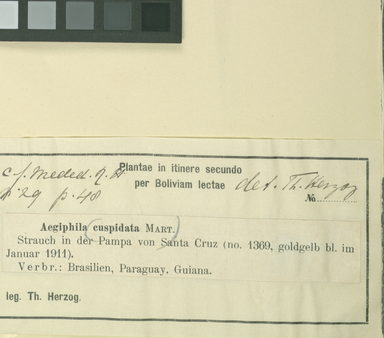 Plantae in itinere secundo
per Boliviam lectae
det. Th. Herzog
c.f. Meded. 
No 29 p. 48
№
Aegiphila (cuspidata MART.)
Strauch in der Pampa von Santa Cruz (no. 1369, goldgelb bl. im
Januar 1911).
Verbr.: Brasilien, Paraguay, Guiana.
leg. Th. Herzog.